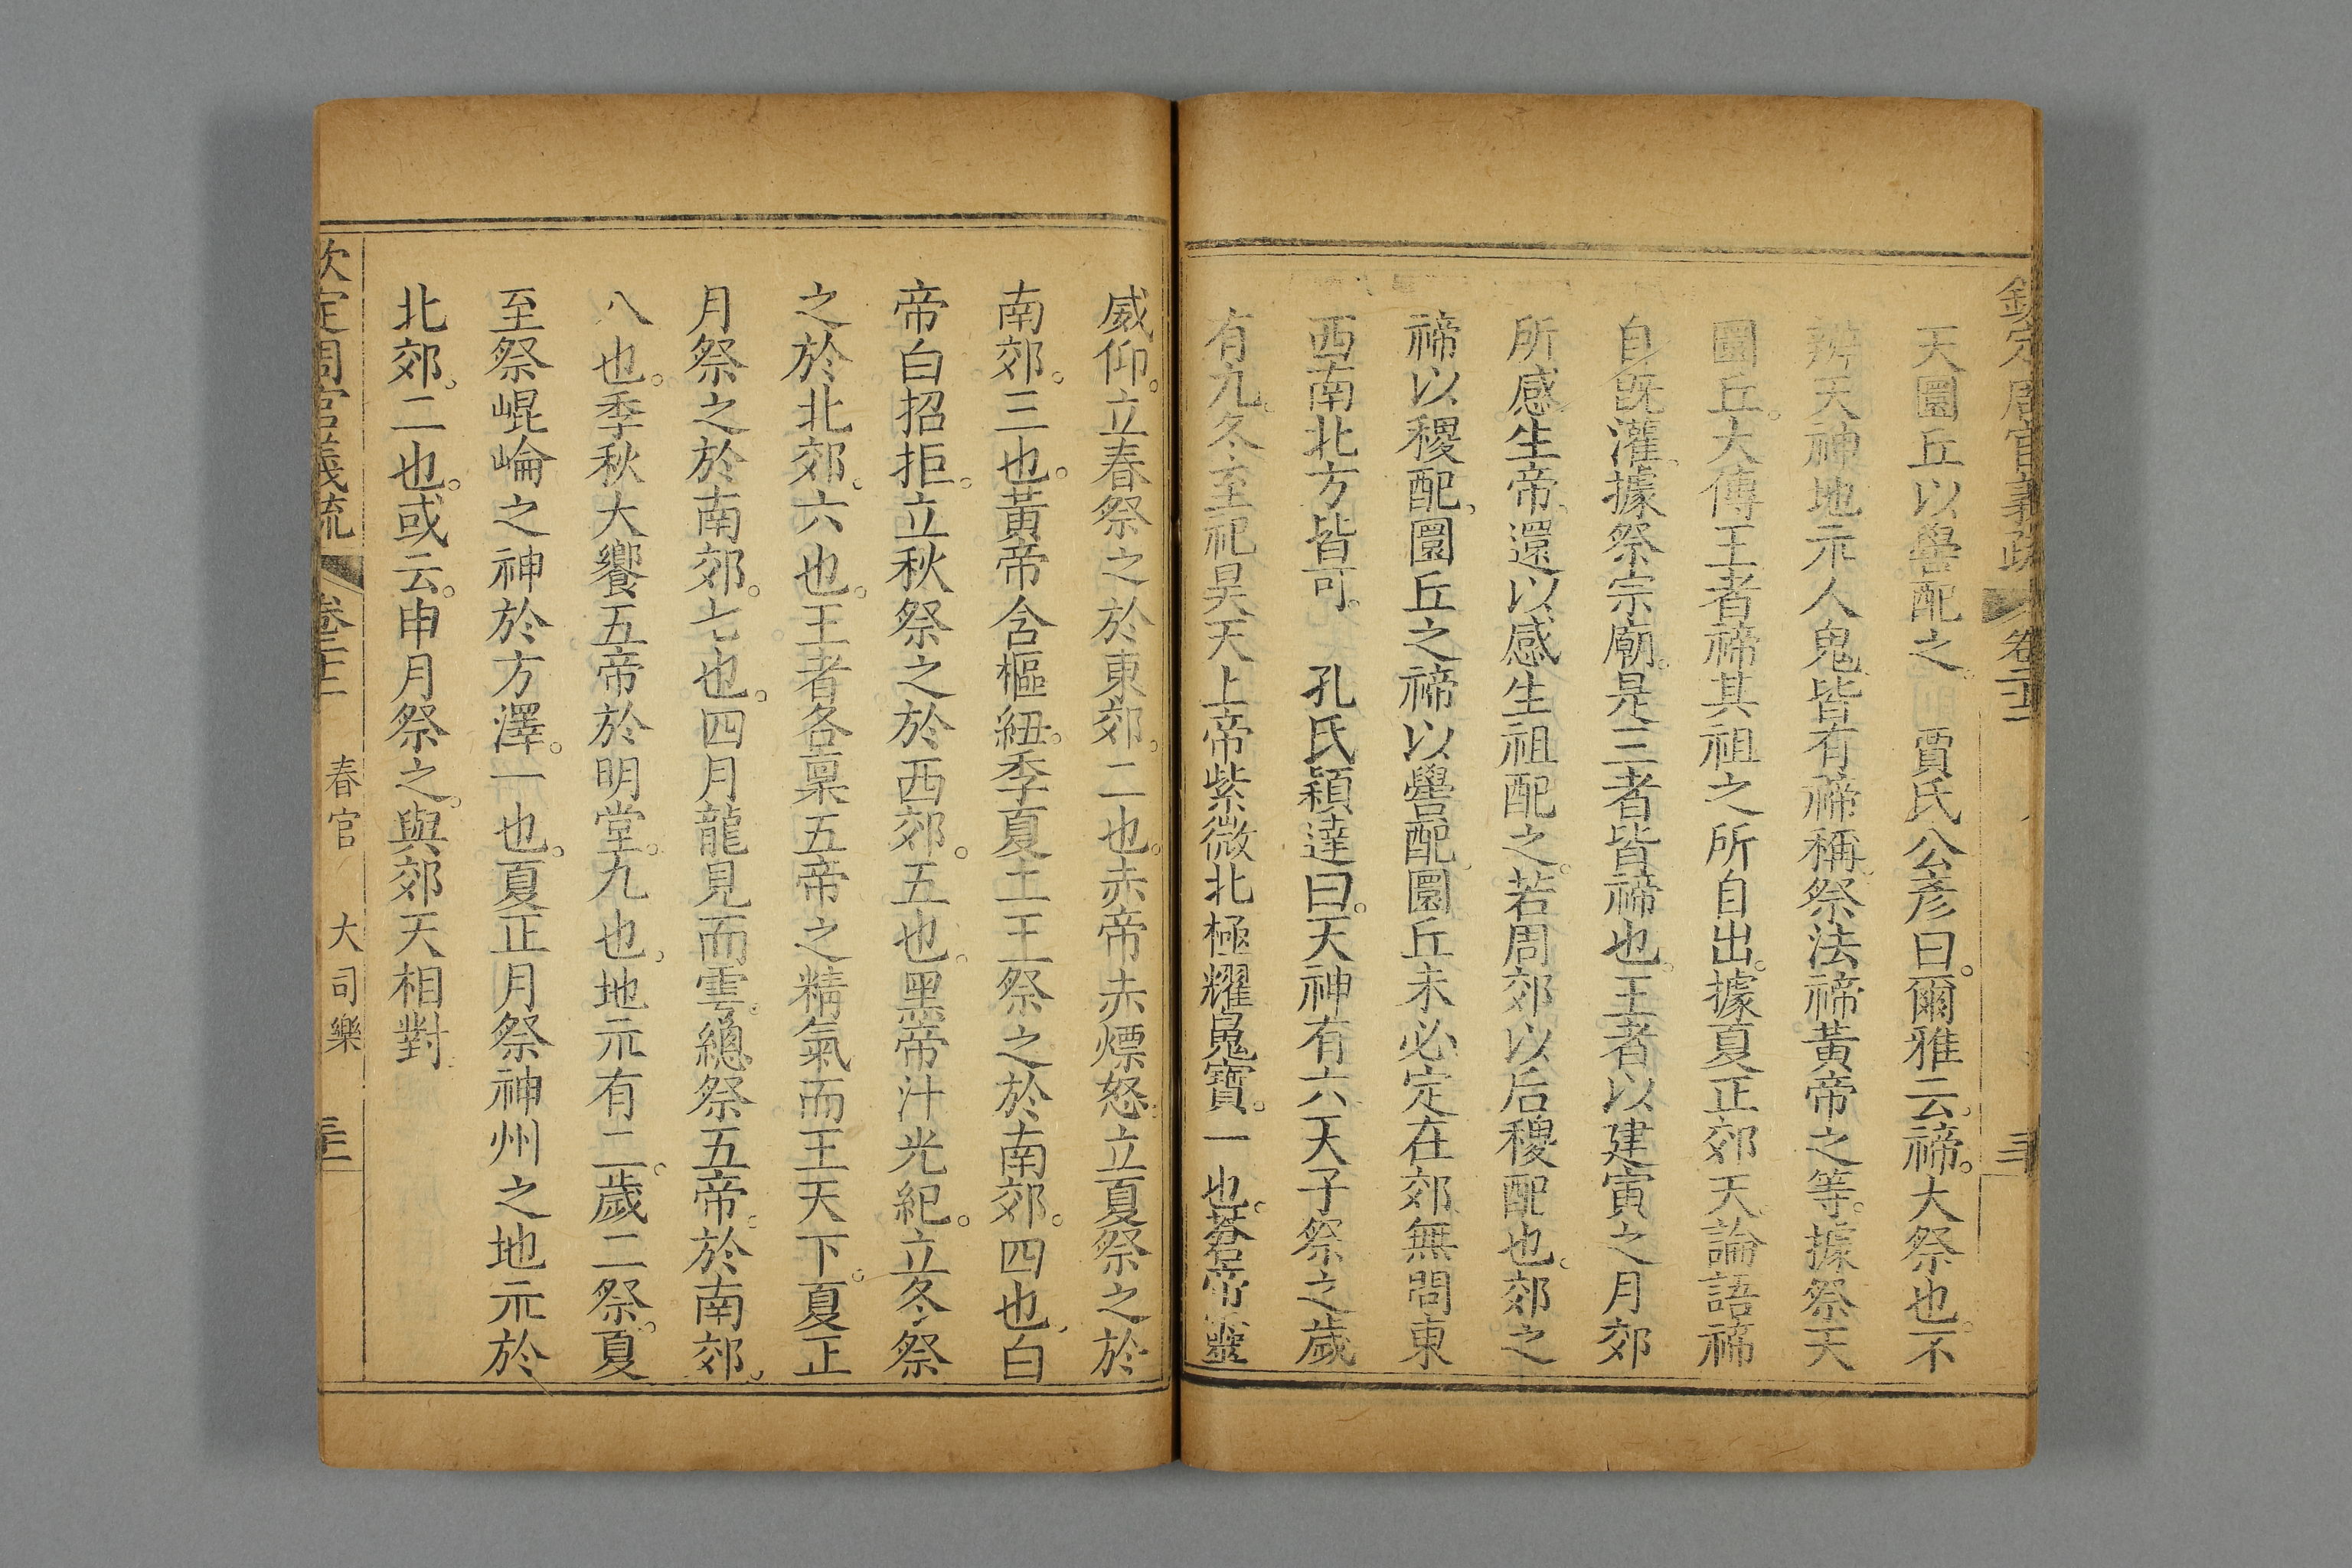 欽定周官義疏 卷二十二 三
天圜丘以嚳配之。 賈氏公彥曰。爾雅云。禘。大祭也。不
辨天神地示人鬼皆有禘稱。祭法禘黃帝之等。據祭天
圜丘。大傳王者禘其祖之所自出。據夏正郊天。論語禘
自旣灌。據祭宗廟。是三者皆禘也。王者以建寅之月郊
所感生帝。還以感生祖配之。若周郊以后稷配也。郊之
禘以稷配。圜丘之禘以嚳配。圜丘未必定在郊。無問東
西南北方皆可。 孔氏穎達曰。天神有六。天子祭之歲
有九。冬至祀昊天上帝紫微北極耀魄寶。一也。蒼帝靈
威仰。立春祭之於東郊。二也。赤帝赤熛怒。立夏祭之於
南郊。三也。黃帝含樞紐。季夏土王祭之於南郊。四也。白
帝白招拒。立秋祭之於西郊。五也。黑帝汁光紀。立冬祭
之於北郊。六也。王者各稟五帝之精氣而王天下。夏正
月祭之於南郊。七也。四月龍見而雩。總祭五帝。於南郊。
八也。季秋大饗五帝於明堂。九也。地示有二。歲二祭。夏
至祭崐崘之神於方澤。一也。夏正月祭神州之地示於
北郊。二也。或云。申月祭之。與郊天相對
欽定周官義疏 卷二十二 春官 大司樂